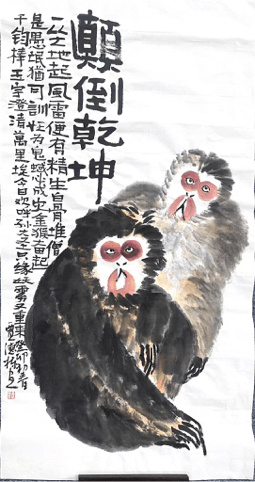 顛倒乾坤
一从大地起風雷便有精生白骨堆僧
是愚氓猶可訓妖为鬼蜮必成災金猴奮起
千鈞棒玉宇澄清萬里埃今日欢呼孙大圣只緣妖雾又重来癸卯初春